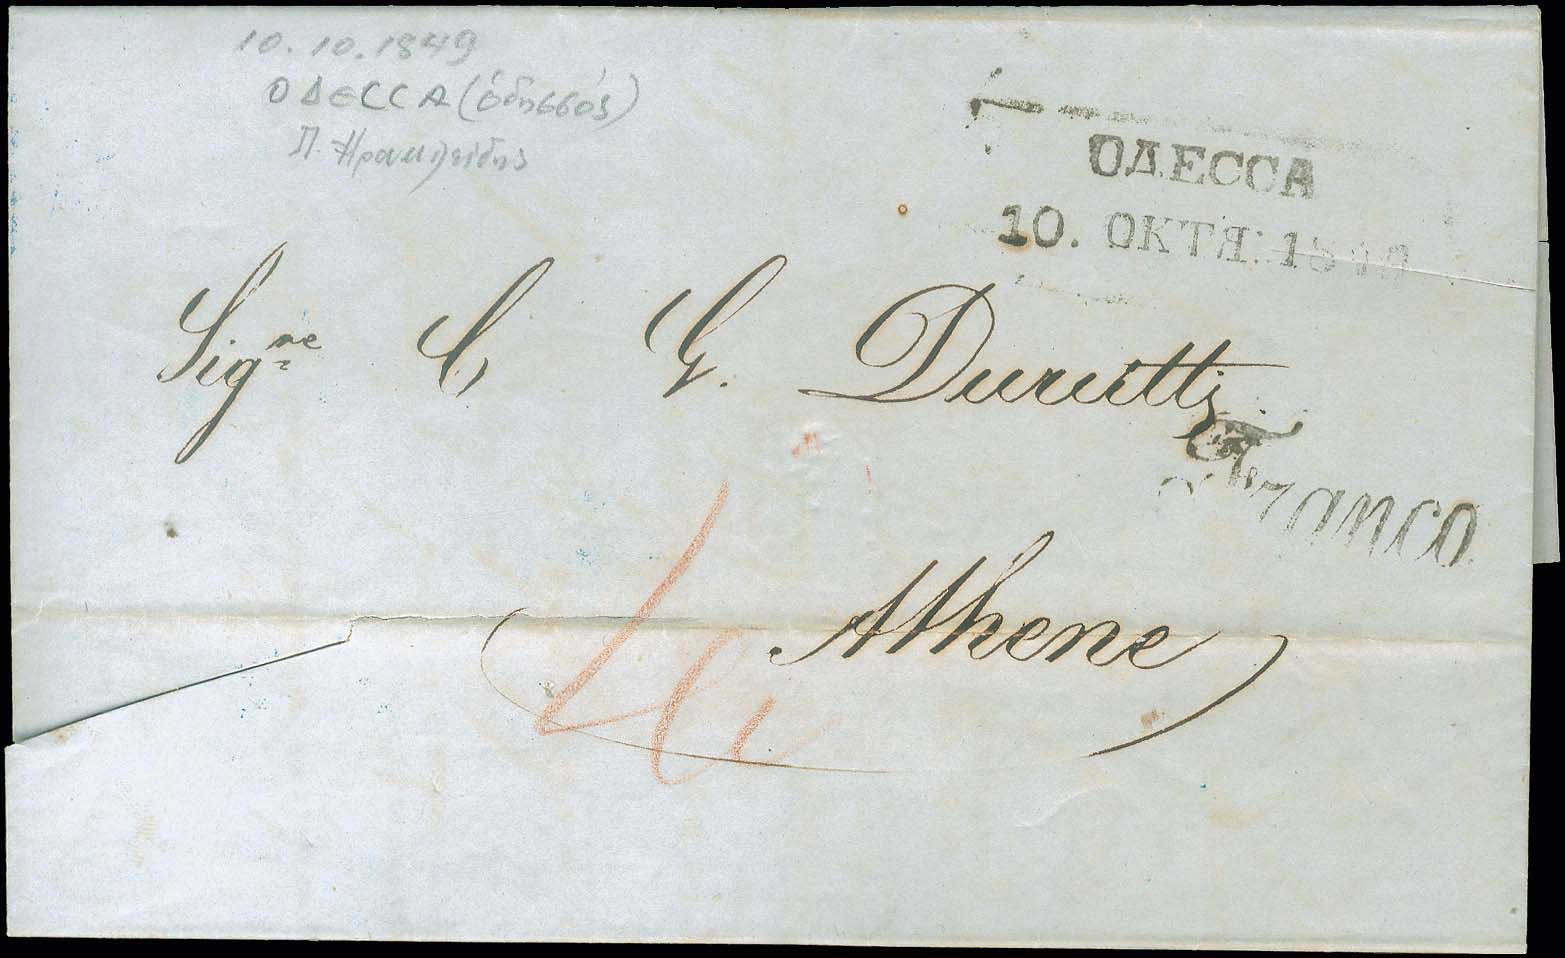 10.10.1849
ΟΔЄССА (Ὀδησσός)
Π. Ηρακλείδης
ОДЕССА
10. ОКТЯ: 1849
Sig.re C G. Durutti
Franco
Athene